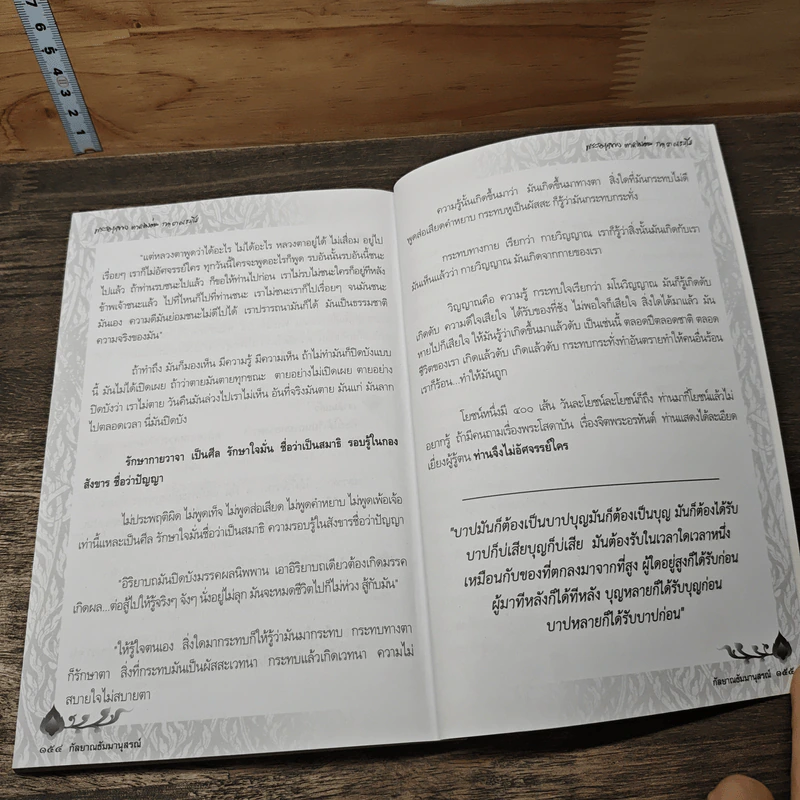 "แต่หลวงตาพูดว่าได้อะไร ไม่ได้อะไร หลวงตาอยู่ได้ ไม่เสื่อม อยู่ไป
เรื่อยๆ เราก็ไม่อัศจรรย์ใคร ทุกวันนี้ใครจะพูดอะไรก็พูด รบอันนั้นรบอันนี้ชนะ
ไปแล้ว ถ้าท่านรบชนะไปแล้ว ก็ขอให้ท่านไปก่อน เราไม่รบไม่ชนะใครก็อยู่ทีหลัง
ข้าพเจ้าชนะแล้ว ไปที่ไหนก็ไปที่ท่านชนะ เราไม่ชนะเราก็ไปเรื่อยๆ จนมันชนะ
มันเอง ความดีมันย่อมชนะไม่ดีไปได้ เราปรารถนามันก็ได้ มันเป็นธรรมชาติ
ความจริงของมัน"
ถ้าทำถึง มันก็มองเห็น มีความรู้ มีความเห็น ถ้าไม่ทำมันก็ปิดบังแบบ
นี้ มันไม่ได้เปิดเผย ถ้าว่าตายมันตายทุกขณะ ตายอย่างไม่เปิดเผย ตายอย่าง
ปิดบังว่า เราไม่ตาย วันคืนมันล่วงไปเราไม่เห็น อันที่จริงมันตาย มันแก่ มันลาก
ไปตลอดเวลา นี่มันปิดบัง
รักษากายวาจา เป็นศีล รักษาใจมั่น ชื่อว่าเป็นสมาธิ รอบรู้ในกอง
สังขาร ชื่อว่าปัญญา
ไม่ประพฤติผิด ไม่พูดเท็จ ไม่พูดส่อเสียด ไม่พูดคำหยาบ ไม่พูดเพ้อเจ้อ
เท่านี้แหละเป็นศีล รักษาใจมั่นชื่อว่าเป็นสมาธิ ความรอบรู้ในสังขารชื่อว่าปัญญา
"อิริยาบถมันปิดบังมรรคผลนิพพาน เอาอิริยาบถเดียวต้องเกิดมรรค
เกิดผล...ต่อสู้ไปให้รู้จริงๆ จังๆ นั่งอยู่ไม่ลุก มันจะหมดชีวิตไปก็ไม่ห่วง สู้กับมัน"
"ให้รู้ใจตนเอง สิ่งใดมากระทบก็ให้รู้ว่ามันมากระทบ กระทบทางตา
ก็รักษาตา สิ่งที่กระทบมันเป็นผัสสะเวทนา กระทบแล้วเกิดเวทนา ความไม่
สบายใจไม่สบายตา
๑๕๔ กัลยาณธัมมานุสรณ์
ความรู้นั้นเกิดขึ้นมาว่า มันเกิดขึ้นมาทางตา สิ่งใดที่มันกระทบไม่ดี
พูดส่อเสียดคำหยาบ กระทบหูเป็นผัสสะ ก็รู้ว่ามันกระทบกระทั่ง
กระทบทางกาย เรียกว่า กายวิญญาณ เราก็รู้ว่าสิ่งนั้นมันเกิดกับเรา
มันเห็นแล้วว่า กายวิญญาณ มันเกิดจากกายของเรา
วิญญาณคือ ความรู้ กระทบใจเรียกว่า มโนวิญญาณ มันก็รู้เกิดดับ
เกิดดับ ความดีใจเสียใจ ได้รับของที่ชัง ไม่พอใจก็เสียใจ สิ่งใดได้มาแล้ว มัน
หายไปก็เสียใจ ให้มันรู้ว่าเกิดขึ้นมาแล้วดับ เป็นเช่นนี้ ตลอดปีตลอดชาติ ตลอด
ชีวิตของเรา เกิดแล้วดับ เกิดแล้วดับ กระทบกระทั่งทำอันตรายทำให้คนอื่นร้อน
เราก็ร้อน...ทำให้มันถูก
โยชน์หนึ่งมี ๔๐๐ เส้น วันละโยชน์ละโยชน์ก็ถึง ท่านมากี่โยชน์แล้วไม่
อยากรู้ ถ้ามีคนถามเรื่องพระโสดาบัน เรื่องจิตพระอรหันต์ ท่านแสดงได้ละเอียด
เยี่ยงผู้รู้ตน ท่านจึงไม่อัศจรรย์ใคร
"บาปมันก็ต้องเป็นบาปบุญมันก็ต้องเป็นบุญ มันก็ต้องได้รับ
บาปก็บ่เสียบุญก็บ่เสีย มันต้องรับในเวลาใดเวลาหนึ่ง
เหมือนกับของที่ตกลงมาจากที่สูง ผู้ใดอยู่สูงก็ได้รับก่อน
ผู้มาทีหลังก็ได้ทีหลัง บุญหลายก็ได้รับบุญก่อน
บาปหลายก็ได้รับบาปก่อน"
กัลยาณธัมมานุสรณ์ ๑๕๕
7 6 5 4 3 2 1